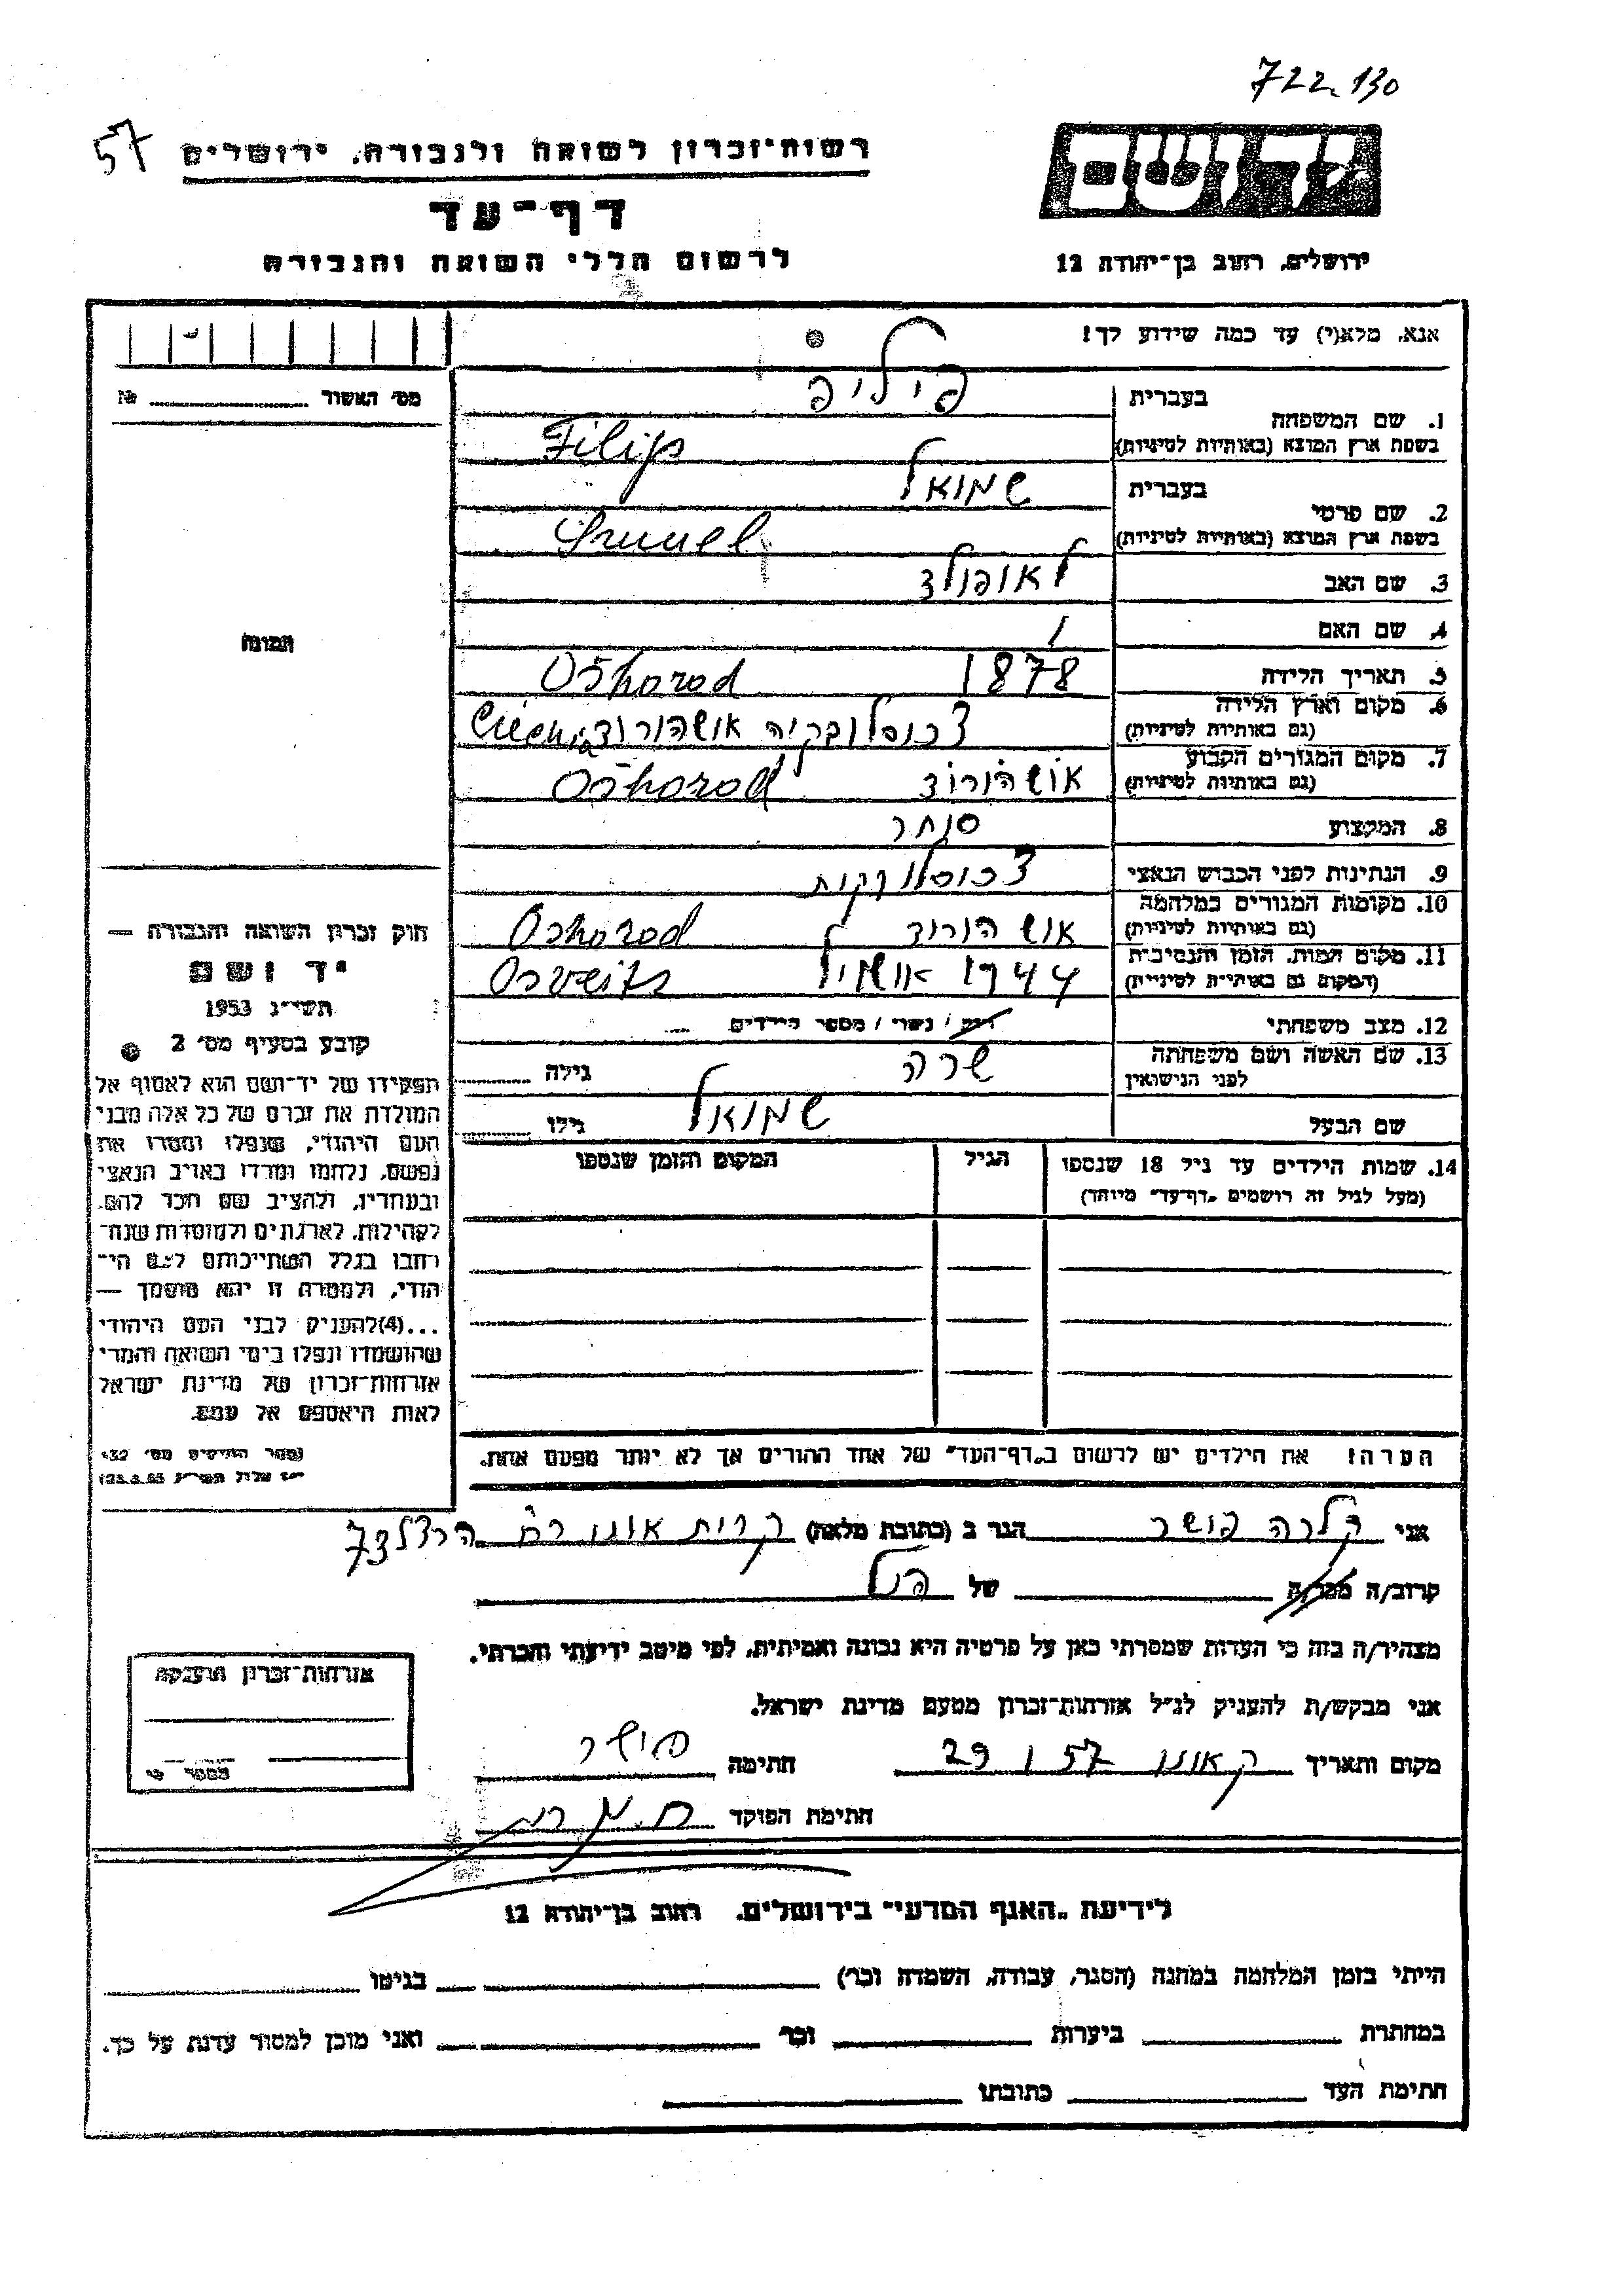 722.130
57
רשות־זכרון לשואה ולגבורה, ירושלים
יד ושם
דף־עד
לרשום חללי השואה והגבורה
ירושלים, רחוב בן־יהודה 12
אנא, מלא(י) עד כמה שידוע לך!
מס' האשור № 
1. שם המשפחה
בעברית פיליפ
בשפת ארץ המוצא (באותיות לטיניות) Filip
2. שם פרטי
בעברית שמואל
בשפת ארץ המוצא (באותיות לטיניות)
3. שם האב לאופולד
4. שם האם /
התמונה
5. תאריך הלידה 1878 Ožhorod
6. מקום וארץ הלידה
(גם באותיות לטיניות) צ'כוסלובקיה אושהורוד
7. מקום המגורים הקבוע
(גם באותיות לטיניות) אושהורוד Ožhorod
8. המקצוע סוחר
9. הנתינות לפני הכבוש הנאצי
10. מקומות המגורים במלחמה
(גם באותיות לטיניות) אושהורוד Oshorod
11. מקום המות, הזמן והנסיבות
(המקום גם באותיות לטיניות) 1944 Osveits
12. מצב משפחתי רווק / נשוי / מספר הילדים
13. שם האשה ושם משפחתה
לפני הנישואין שרה גילה
שם הבעל שמואל גילו
14. שמות הילדים עד גיל 18 שנספו הגיל המקום והזמן שנספו
(מעל לגיל זה רושמים „דף־עד" מיוחד)
חוק זכרון השואה והגבורה —
יד ושם
תשי"ג 1953
קובע בסעיף מס' 2
תפקידו של יד־ושם הוא לאסוף אל
המולדת את זכרם של כל אלה מבני
העם היהודי, שנפלו ומסרו את
נפשם, נלחמו ומרדו באויב הנאצי
ובעוזריו, ולהציב שם וזכר להם,
לקהילות, לארגונים ולמוסדות שנח־
רבו בגלל השתייכותם לעם הי־
הודי, ולמטרה זו יהא מוסמך —
...(4)להעניק לבני העם היהודי
שהושמדו ונפלו בימי השואה והמרי
אזרחות־זכרון של מדינת ישראל
לאות היאספם אל עמם.
(ספר החוקים מס' 132
הערה! את הילדים יש לרשום ב„דף־העד" של אחד ההורים אך לא יותר מפעם אחת.
אני קלרה פושר הגר ב (כתובת מלאה) קרית אונו רח הרצל 73
קרוב/ה מכר/ה של הנ"ל
מצהיר/ה בזה כי העדות שמסרתי כאן על פרטיה היא נכונה ואמיתית, לפי מיטב ידיעתי והכרתי.
אני מבקש/ת להעניק לנ"ל אזרחות־זכרון מטעם מדינת ישראל.
מקום ותאריך ק אונו 29 1 57 חתימה
חתימת הפוקד
אזרחות־זכרון הוענקה
לידיעת „האגף המדעי" בירושלים, רחוב בן־יהודה 12
הייתי בזמן המלחמה במחנה (הסגר, עבודה, השמדה וכו') בגיטו
במחתרת ביערות וכו' ואני מוכן למסור עדות על כך.
חתימת העד כתובתו